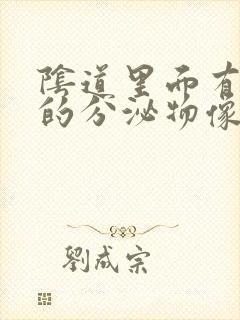 陰道里面有
的分泌物像
劉成宗